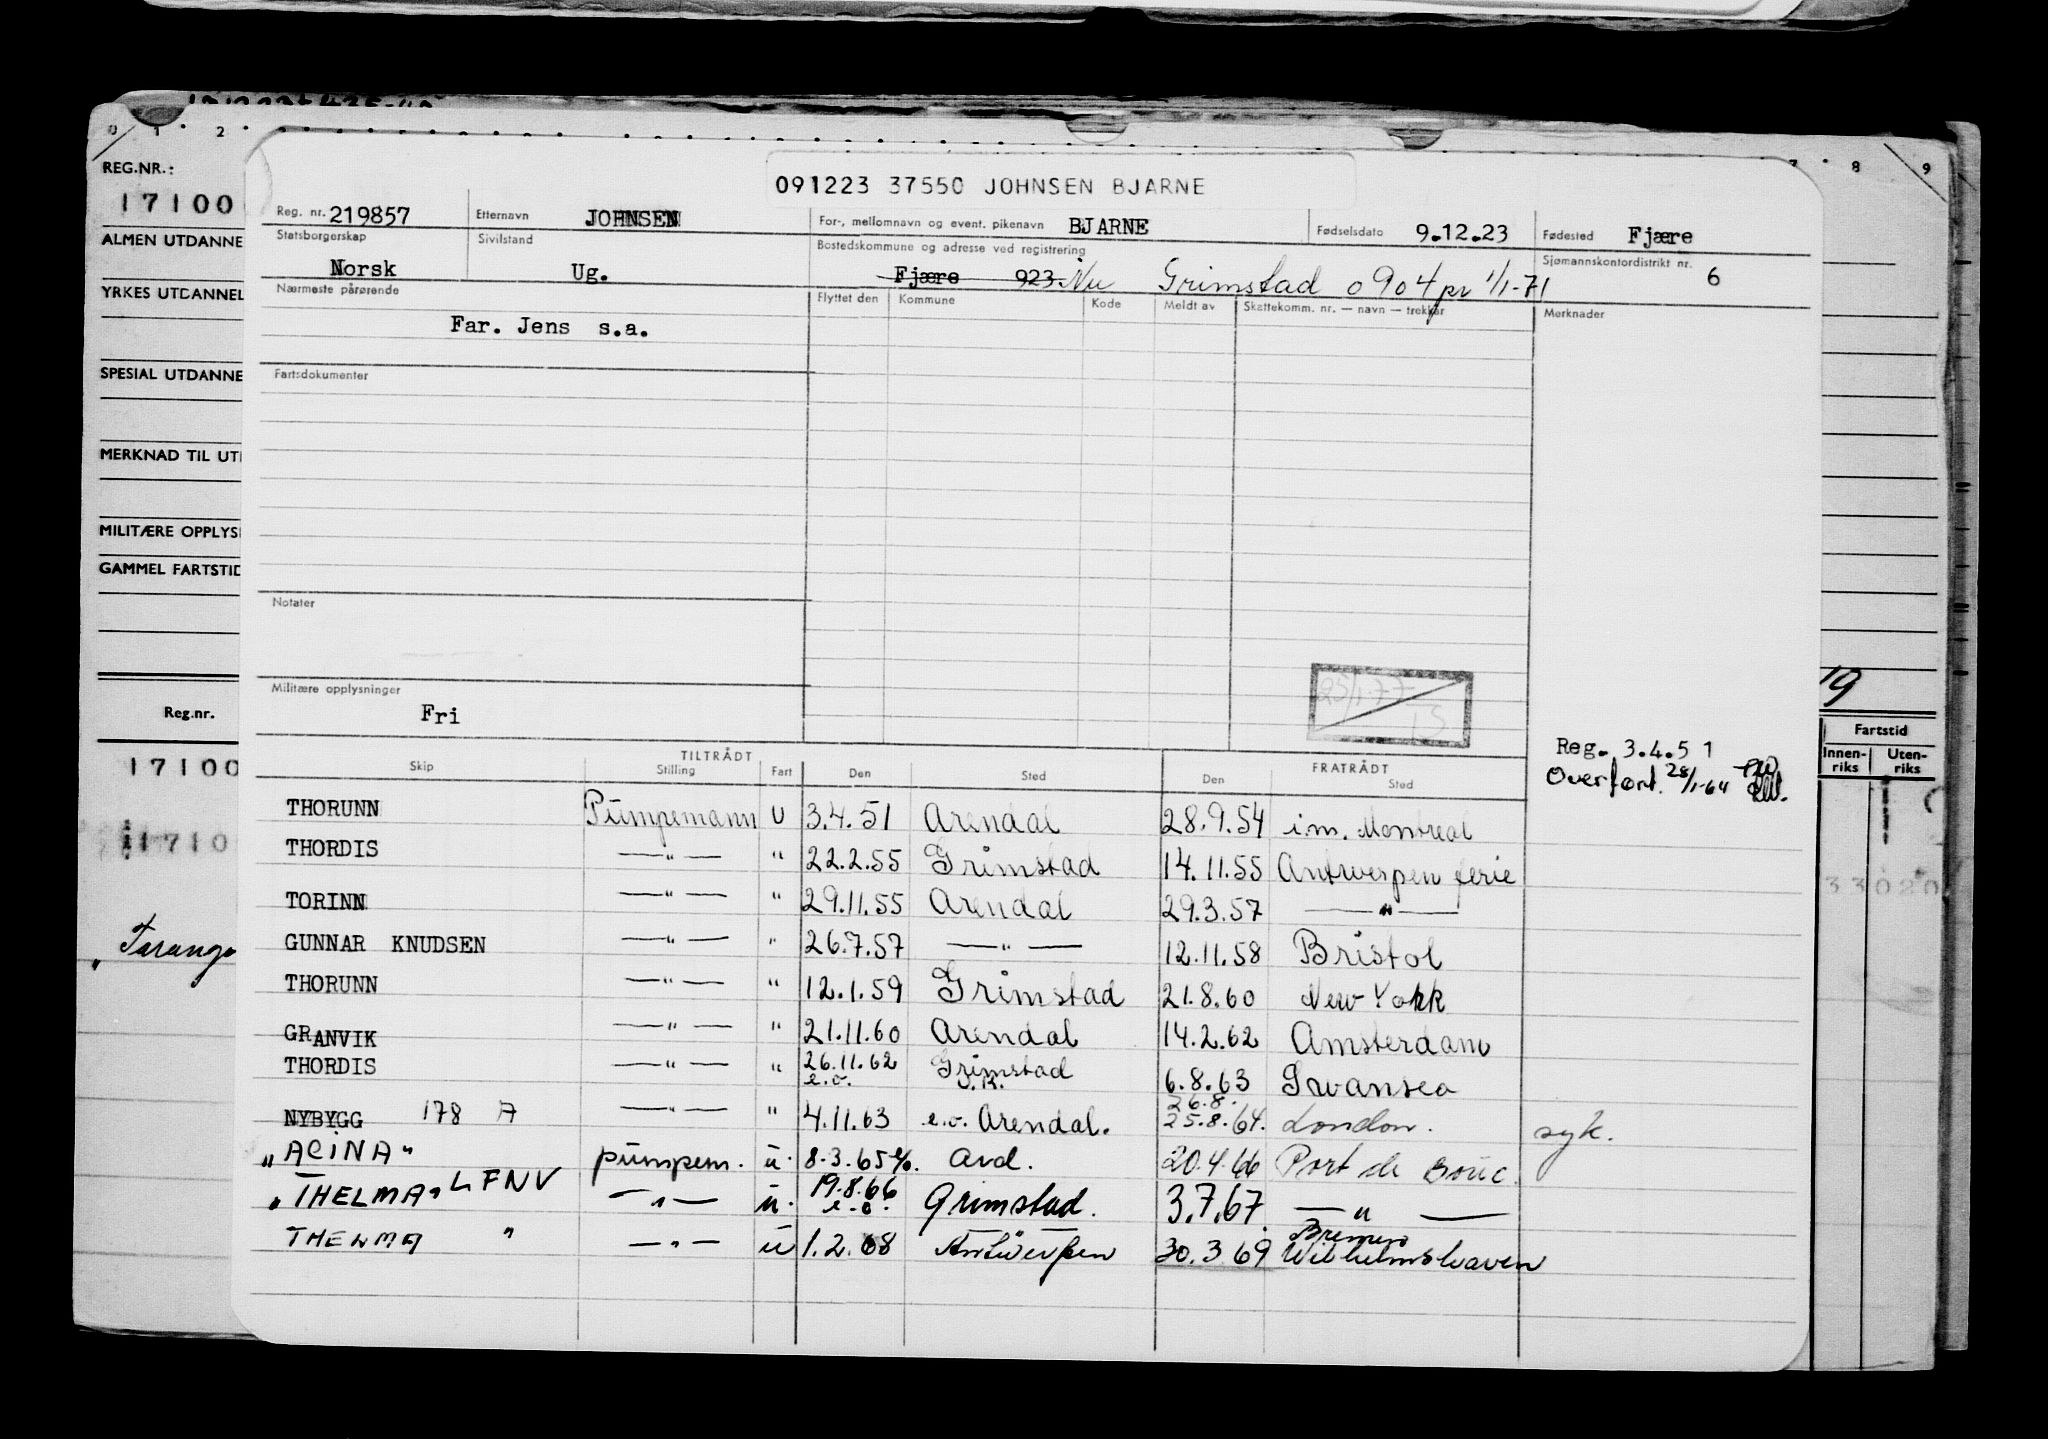 0 1 2 7 8 9
REG.NR.:
17100
ALMEN UTDANNE
YRKES UTDANNEL
SPESIAL UTDANNE
MERKNAD TIL UT
MILITÆRE OPPLYS
GAMMEL FARTSTID
Reg.nr.
17100
1710
"Tarango
091223 37550 JOHNSEN BJARNE
Reg. nr. 219857 Etternavn JOHNSEN For-, mellomnavn og event. pikenavn BJARNE Fødselsdato 9.12.23 Fødested Fjære
Statsborgerskap Norsk Sivilstand Ug. Bostedskommune og adresse ved registrering Fjære 923 Nu Grimstad 0904 pr 1/1-71 Sjømannskontordistrikt nr. 6
Nærmeste pårørende Flyttet den Kommune Kode Meldt av Skattekomm. nr. — navn — trekkår Merknader
Far. Jens s.a.
Fartsdokumenter
Notater
Militære opplysninger
Fri
25/1-77
15
Reg. 3.4.51
Overført. 28/1-64
TILTRÅDT FRATRÅDT
Skip Stilling Fart Den Sted Den Sted
THORUNN Pumpemann U 3.4.51 Arendal 28.9.54 i.m. Montreal
THORDIS —"— " 22.2.55 Grimstad 14.11.55 Antwerpen ferie
TORINN —"— " 29.11.55 Arendal 29.3.57 —"—
GUNNAR KNUDSEN —"— " 26.7.57 —"— 12.11.58 Bristol
THORUNN —"— " 12.1.59 Grimstad 21.8.60 New York
GRANVIK —"— " 21.11.60 Arendal 14.2.62 Amsterdam
THORDIS —"— " 26.11.62 e.o. Grimstad 6.8.63 Swansea
NYBYGG 178 A —"— " 4.11.63 e.o. Arendal. 26.8. 25.8.64. London. syk.
"ACINA" pumpem. u. 8.3.65 Ard. 20.4.66 Port de Bouc.
"THELMA" LFNV —"— u. 19.8.66 e.o. Grimstad. 3.7.67. —"—
THELMA " —"— u 1.2.68 Antwerpen 30.3.69 Bremen Wilhelmshaven
19
Fartstid
Innen-riks Uten-riks
33020